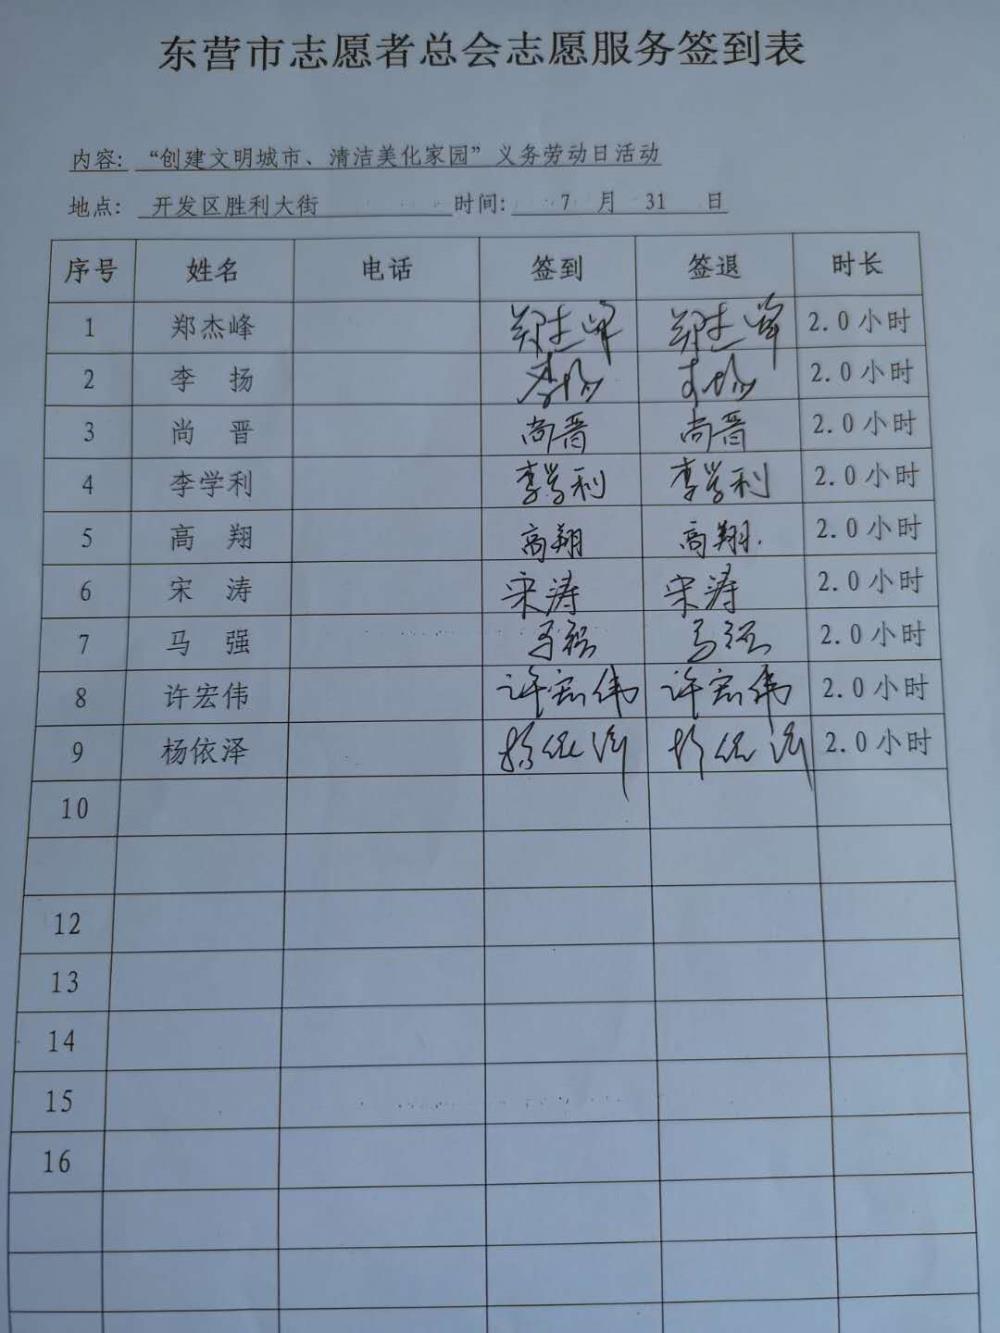 东营市志愿者总会志愿服务签到表
内容: “创建文明城市、清洁美化家园”义务劳动日活动
地点: 开发区胜利大街 时间: 7 月 31 日
序号 姓名 电话 签到 签退 时长
1 郑杰峰 郑杰峰 郑杰峰 2.0小时
2 李 扬 李扬 李扬 2.0小时
3 尚 晋 尚晋 尚晋 2.0小时
4 李学利 李学利 李学利 2.0小时
5 高 翔 高翔 高翔. 2.0小时
6 宋 涛 宋涛 宋涛 2.0小时
7 马 强 马强 马强 2.0小时
8 许宏伟 许宏伟 许宏伟 2.0小时
9 杨依泽 杨依泽 杨依泽 2.0小时
10
12
13
14
15
16